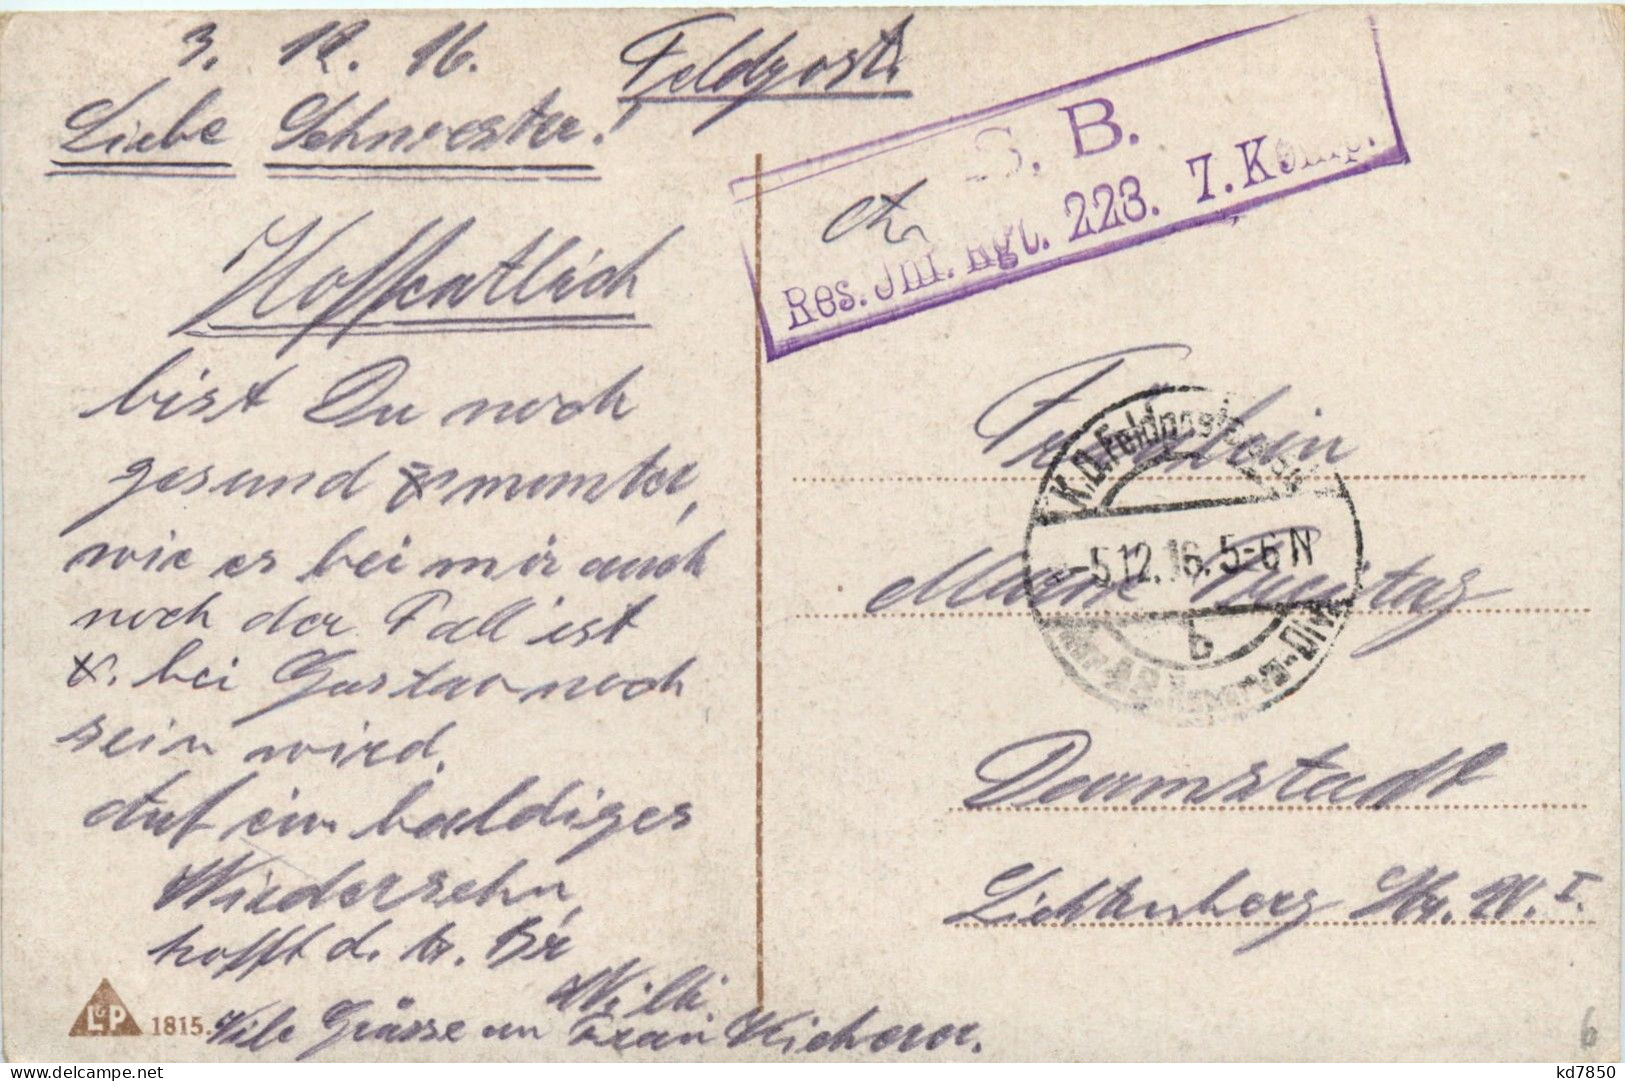 3. 12. 16. Feldpost.
Liebe Schwester!
Hoffentlich
bist Du noch
gesund & munter,
wie es bei mir auch
noch der Fall ist
&. bei Gustav noch
sein wird.
Auf ein baldiges
Wiedersehn,
hofft d. tr. Br.
Willi.
Viele Grüsse an Frau Wicherer.
L&P 1815.
S. B.
Res. Inf. Rgt. 223. 7. Komp.
Fräulein
Marie Freitag
Darmstadt
Lichtenberg Str. W. I.
K.D. Feldpostexped.
-5.12.16. 5-6 N
b
der 48. Reserve-Div.
6
kd7850